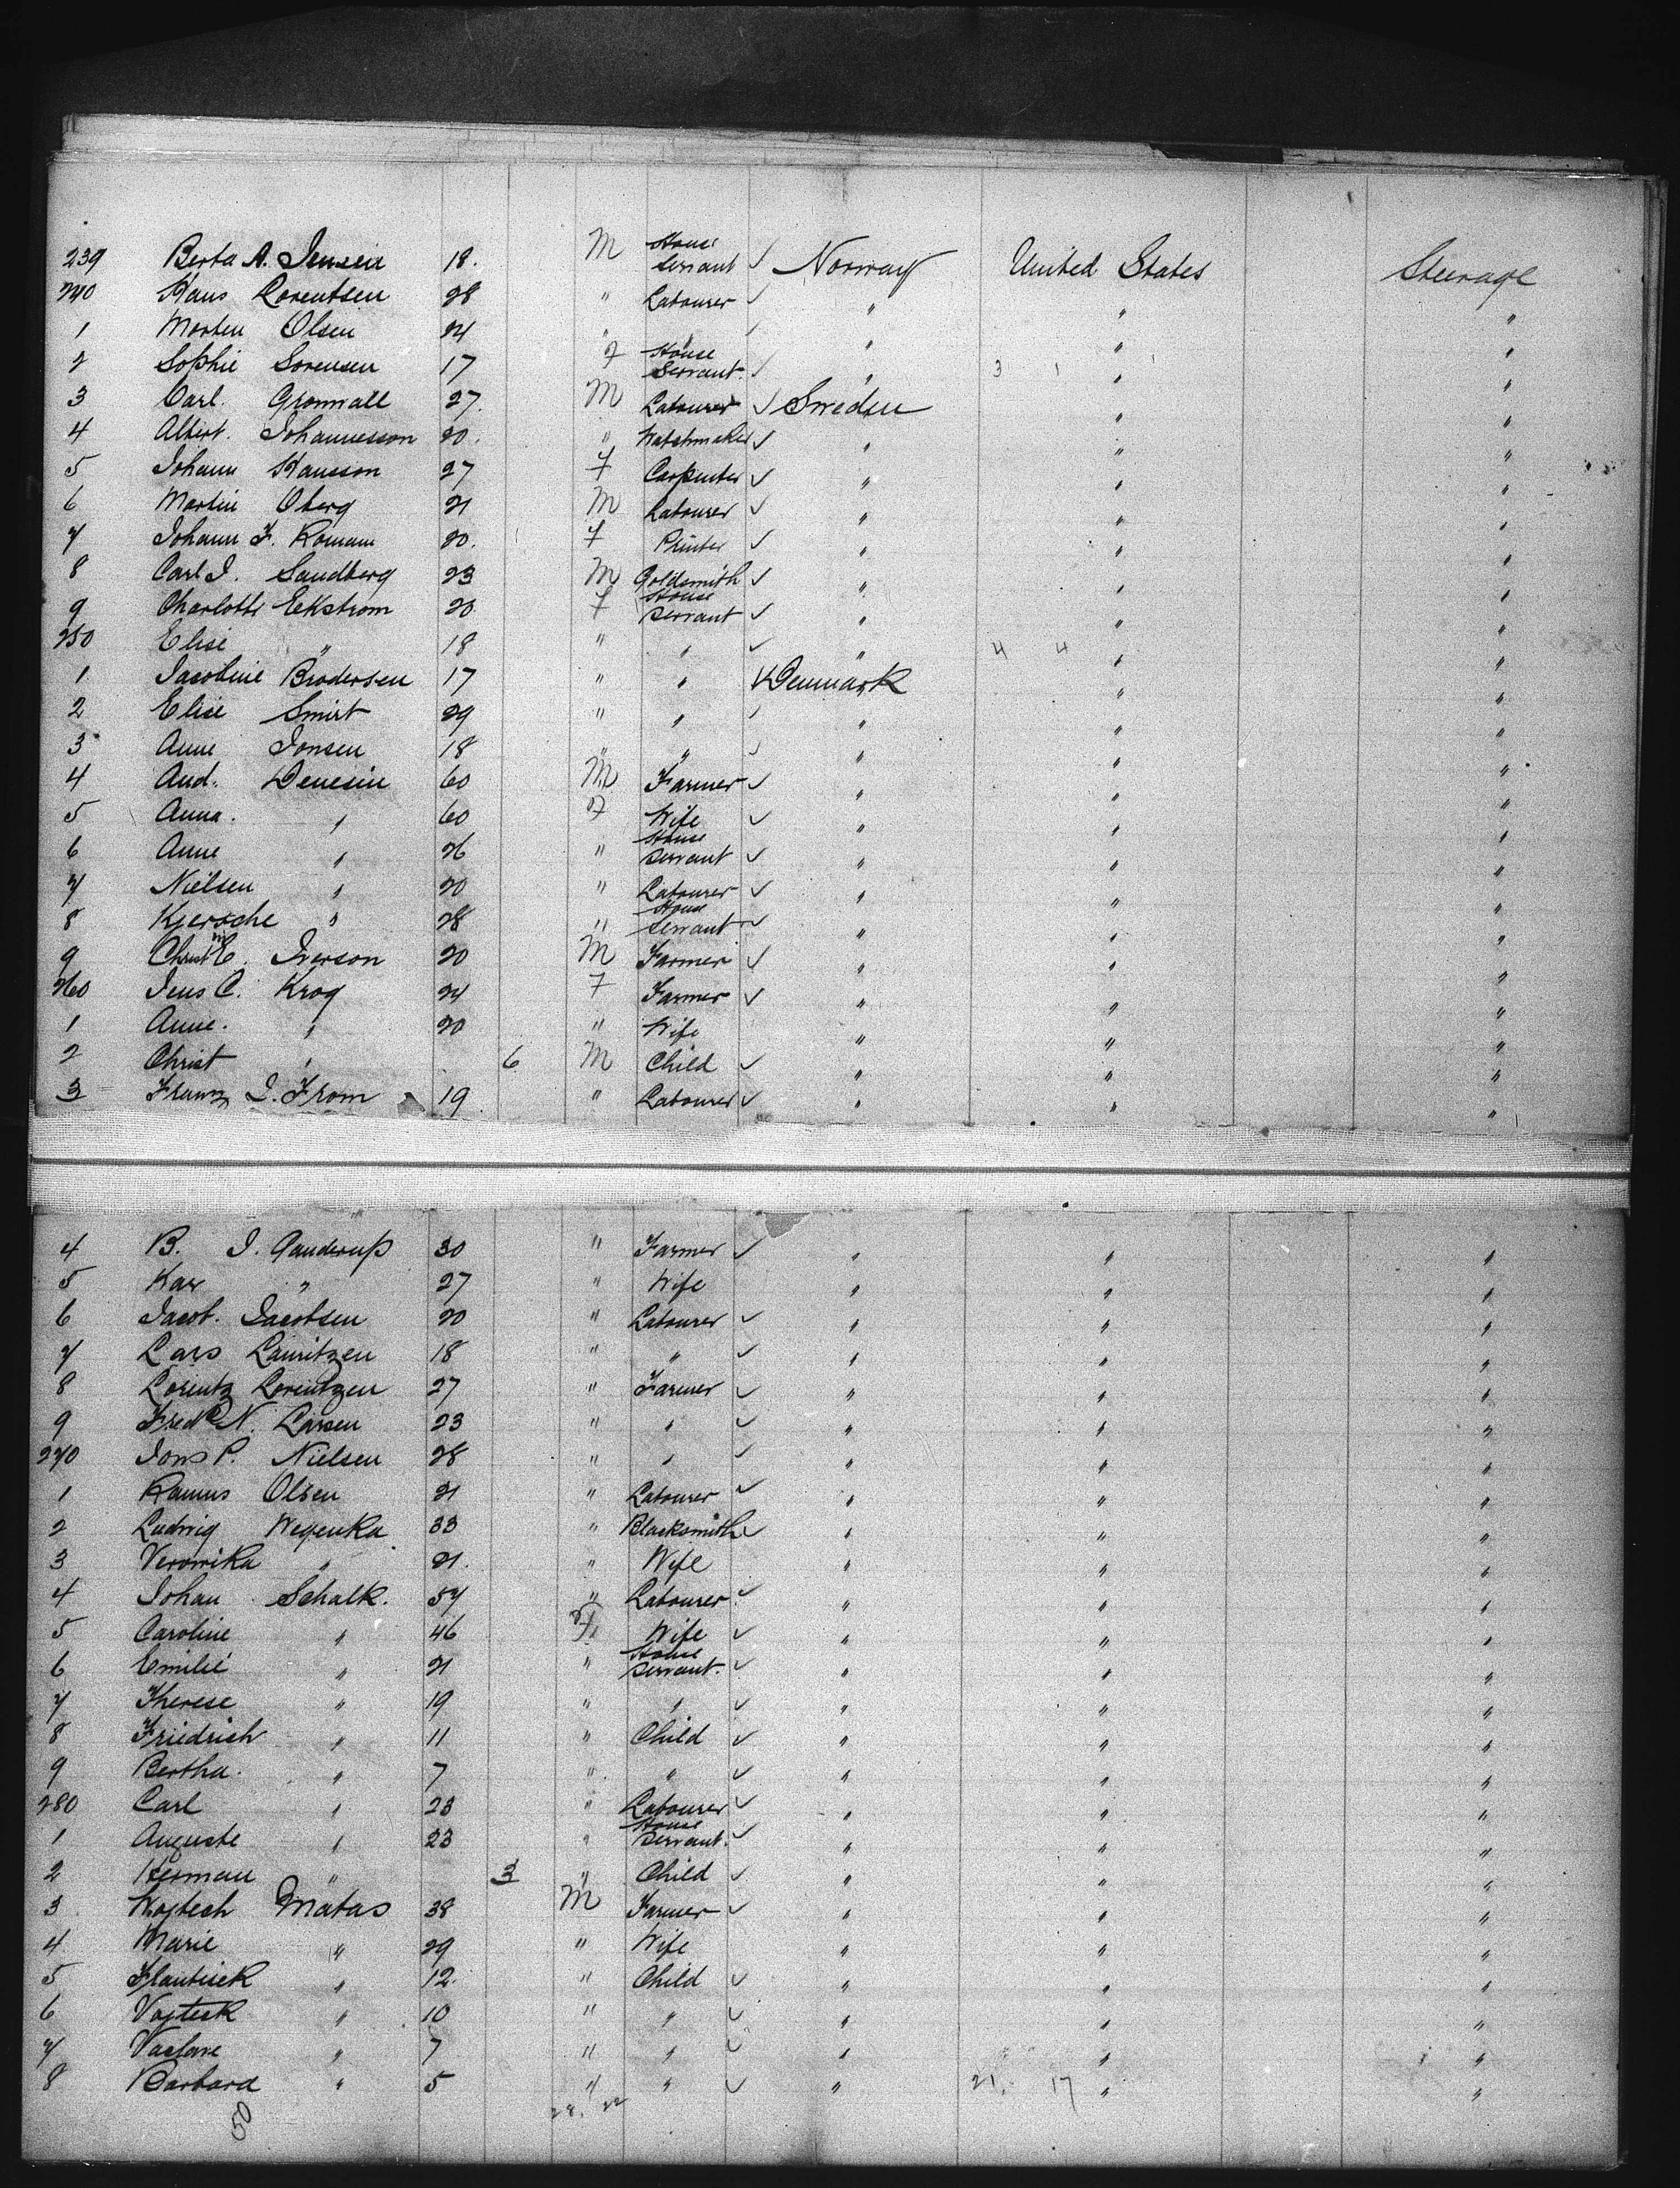 239 Berta A. Jensen 18. M House Servant ✓ Norway United States Steerage
240 Hans Lorentsen 28 " Labourer ✓ " " "
1 Morten Olsen 24 " " ✓ " " "
2 Sophie Sorensen 17 F House Servant. ✓ " 3 1 " "
3 Carl. Gronwall 27. M Labourer ✓ Sweden " "
4 Albert. Johannesson 20. " Watchmaker ✓ " " "
5 Johann Hansson 27 F Carpenter ✓ " " "
6 Martin Oberg 21 M Labourer ✓ " " "
7 Johann F. Romann 20. F Printer ✓ " " "
8 Carl J. Sandberg 23 M Goldsmith ✓ " " "
9 Charlotte Eckstrom 20 F House Servant ✓ " " "
250 Elise " 18 " " ✓ " 4 4 " "
1 Jacobine Brodersen 17 " " ✓ Denmark " "
2 Elise Smirt 29 " " ✓ " " "
3 Anne Jonsen 18 " " ✓ " " "
4 And. Denesin 60 M Farmer ✓ " " "
5 Anna. " 60 F Wife ✓ " " "
6 Anne " 26 " House Servant ✓ " " "
7 Nielsen " 20 " Labourer ✓ " " "
8 Kjersche " 28 " House Servant ✓ " " "
9 Christn E. Iverson 20 M Farmer ✓ " " "
260 Jens C. Krog 24 F Farmer ✓ " " "
1 Anne. " 20 " Wife " " "
2 Christ " 6 M Child ✓ " " "
3 Franz J. From 19 " Labourer ✓ " " "
4 B. J. Ganderup 30 " Farmer ✓ " " "
5 Kar " 27 " Wife " " "
6 Jacob. Jacobsen 20 " Labourer ✓ " " "
7 Lars Lauritzen 18 " " ✓ " " "
8 Lorentz Lorentzen 27 " Farmer ✓ " " "
9 Fredk N. Larsen 23 " " ✓ " " "
270 Jons P. Nielsen 28 " " ✓ " " "
1 Ramus Olsen 21 " Labourer ✓ " " "
2 Ludwig Wegenka 33 " Blacksmith ✓ " " "
3 Veronika " 21. " Wife " " "
4 Johan Schalk. 57 " Labourer ✓ " " "
5 Caroline " 46 F Wife ✓ " " "
6 Emilie " 21 " House Servant. ✓ " " "
7 Therese " 19 " " ✓ " " "
8 Friedrich " 11 " Child ✓ " " "
9 Bertha. " 7 " " ✓ " " "
280 Carl " 23 " Labourer ✓ " " "
1 Auguste " 23 " House Servant. ✓ " " "
2 Herman " 3 " Child ✓ " " "
3 Wojtech Matas 38 M Farmer ✓ " " "
4 Marie " 29 " Wife " " "
5 Flantisek " 12. " Child ✓ " " "
6 Vojtesk " 10 " " ✓ " " "
7 Vaclave " 7 " " ✓ " " "
8 Barbara " 5 " " ✓ " 21. 17 " "
50 28. 22